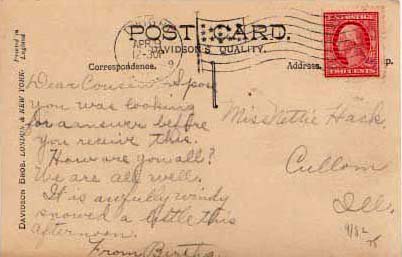 POST CARD.
DAVIDSON'S QUALITY.
Correspondence.
Address.
Printed in
England
DAVIDSON BROS. LONDON & NEW YORK.
APR
12-30P
TWO CENTS
Dear Cousin: I spose
you was looking
for a answer before
you receive this.
How are you all?
We are all well.
It is awfully windy
snowed a little this
afternoon.
From Bertha
Miss Nettie Hask.
Cullom
Ill.